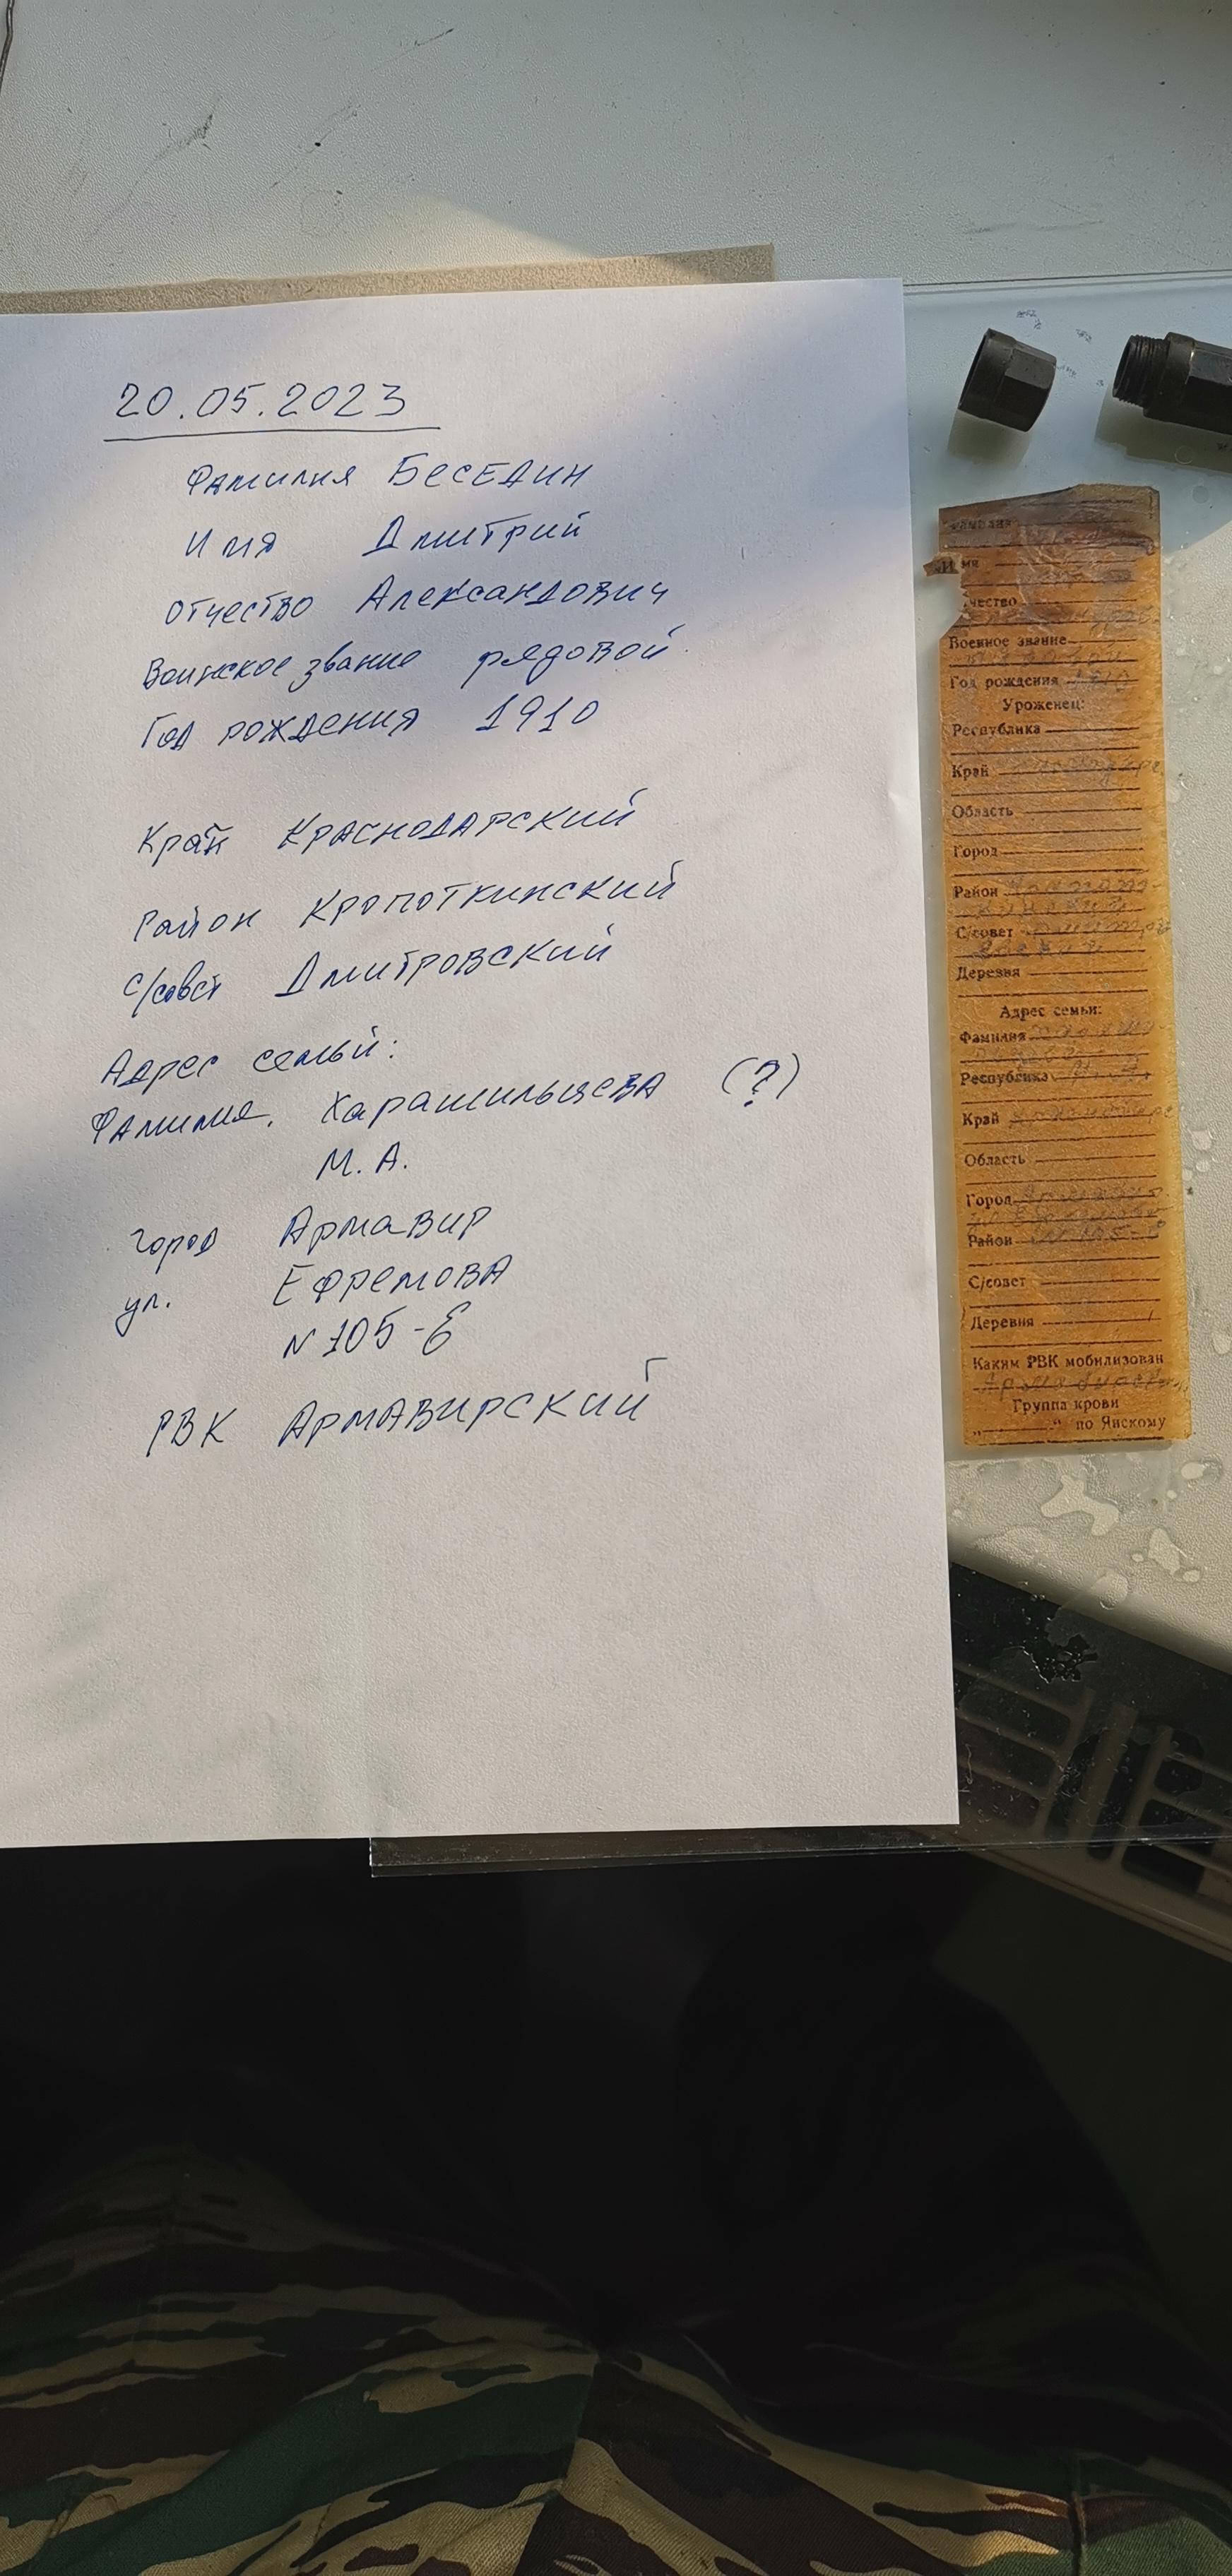 20.05.2023
Фамилия Беседин
Имя Дмитрий
Отчество Александович
Воинское звание рядовой
Год рождения 1910
Край Краснодарский
Район Кропоткинский
с/совет Дмитровский
Адрес семьи:
Фамилия. Харашильцева (?)
М. А.
город Армавир
ул. Ефремова
N 105-Е
РВК Армавирский
Фамилия
Имя
чество
Военное звание
Год рождения 1910
Уроженец:
Республика
Край
Область
Город
Район
С/совет
Деревня
Адрес семьи:
Фамилия
Республика
Край
Область
Город
Район N 105-Е
С/совет
Деревня
Каким РВК мобилизован
Группа крови
„ “ по Янскому